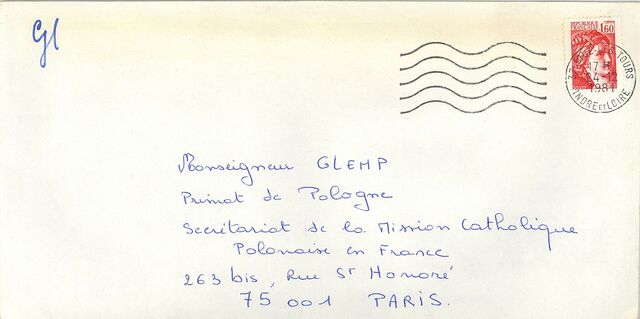 Gl
REPUBLIQUE
FRANÇAISE
1,60
TOURS
17 H
24-12
1981
INDRE ET LOIRE
Monseigneur GLEMP
Primat de Pologne
Secrétariat de la Mission Catholique
Polonaise en France
263 bis, Rue St Honoré
75 001 PARIS.